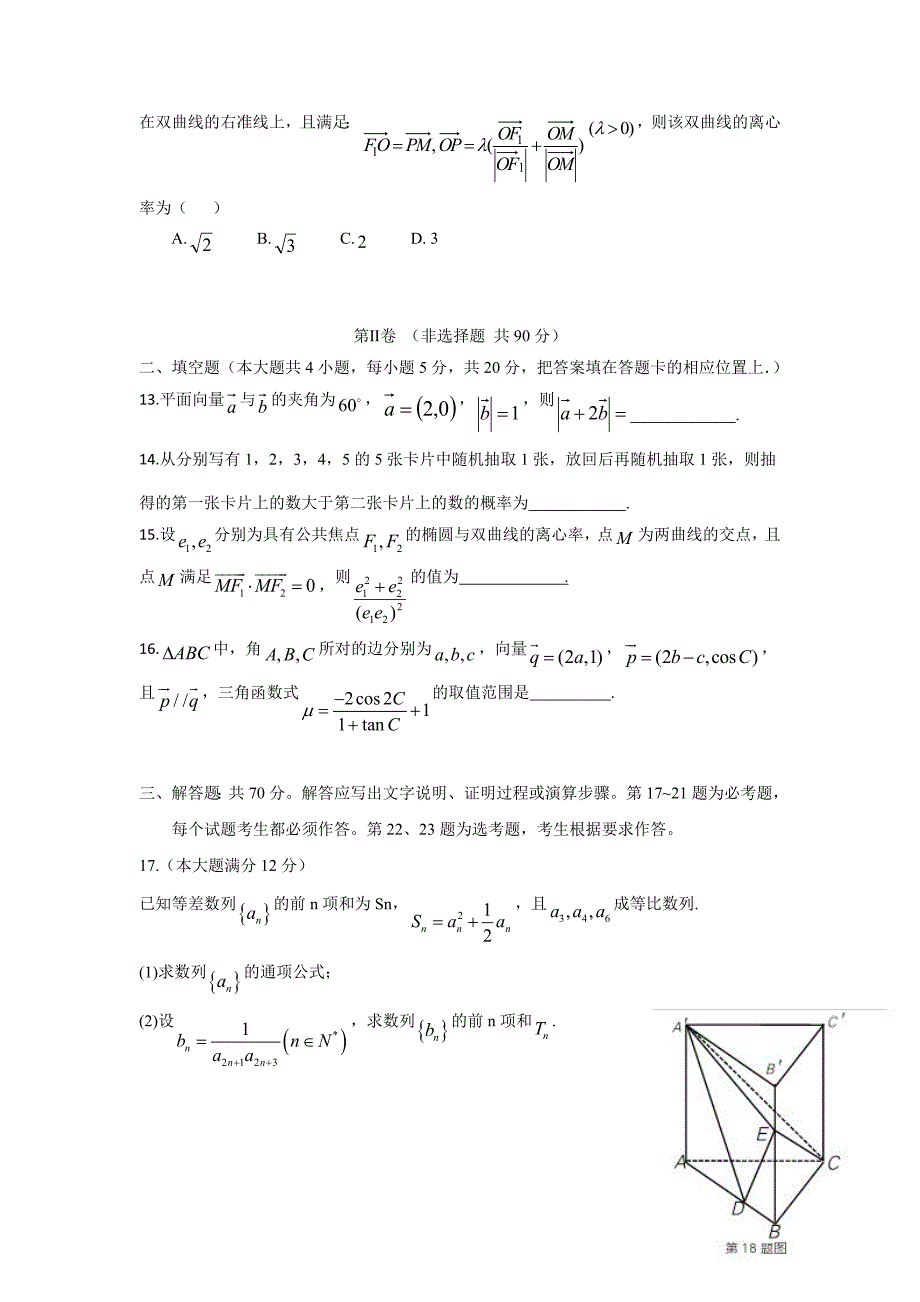 在双曲线的右准线上，且满足: $\overrightarrow{F_1O}=\overrightarrow{PM},\overrightarrow{OP}=\lambda(\frac{\overrightarrow{OF_1}}{|\overrightarrow{OF_1}|}+\frac{\overrightarrow{OM}}{|\overrightarrow{OM}|})(\lambda>0)$，则该双曲线的离心
率为（ ）
A. $\sqrt{2}$ B. $\sqrt{3}$ C. 2 D. 3
第Ⅱ卷 （非选择题 共 90 分）
二、填空题（本大题共 4 小题，每小题 5 分，共 20 分，把答案填在答题卡的相应位置上．）
13.平面向量 $\vec{a}$ 与 $\vec{b}$ 的夹角为 $60^\circ$，$\vec{a}=(2,0)$，$|\vec{b}|=1$，则 $|\vec{a}+2\vec{b}|=$ ______.
14.从分别写有 1，2，3，4，5 的 5 张卡片中随机抽取 1 张，放回后再随机抽取 1 张，则抽
得的第一张卡片上的数大于第二张卡片上的数的概率为______.
15.设 $e_1,e_2$ 分别为具有公共焦点 $F_1,F_2$ 的椭圆与双曲线的离心率，点 $M$ 为两曲线的交点，且
点 $M$ 满足 $\overrightarrow{MF_1}\cdot\overrightarrow{MF_2}=0$，则 $\frac{e_1^2+e_2^2}{(e_1e_2)^2}$ 的值为______.
16. $\Delta ABC$ 中，角 $A,B,C$ 所对的边分别为 $a,b,c$，向量 $\vec{q}=(2a,1)$，$\vec{p}=(2b-c,\cos C)$，
且 $\vec{p}//\vec{q}$，三角函数式 $\mu=\frac{-2\cos 2C}{1+\tan C}+1$ 的取值范围是______.
三、解答题: 共 70 分。解答应写出文字说明、证明过程或演算步骤。第 17~21 题为必考题，
每个试题考生都必须作答。第 22、23 题为选考题，考生根据要求作答。
17.（本大题满分 12 分）
已知等差数列 $\{a_n\}$ 的前 n 项和为 Sn， $S_n=a_n^2+\frac{1}{2}a_n$，且 $a_3,a_4,a_6$ 成等比数列.
(1)求数列 $\{a_n\}$ 的通项公式；
(2)设 $b_n=\frac{1}{a_{2n+1}a_{2n+3}}(n\in N^*)$，求数列 $\{b_n\}$ 的前 n 项和 $T_n$.
A' C'
B'
E
A C
D
B
第 18 题图